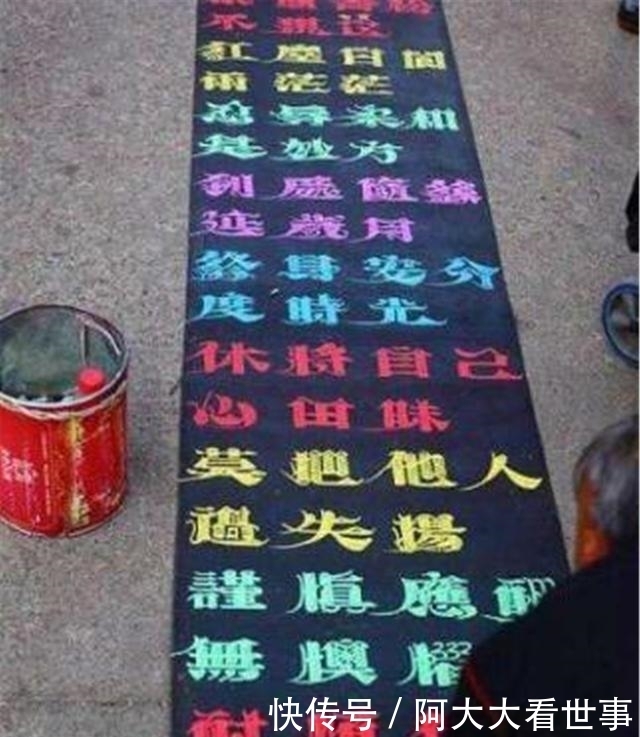 不
紅塵白
兩茫茫
忍辱柔和
是妙方
到處隨緣
延歲月
終身安分
度時光
休將自己
心田昧
莫把他人
過失揚
謹慎應酬
無懊惱
耐
快传号/阿大大看世事